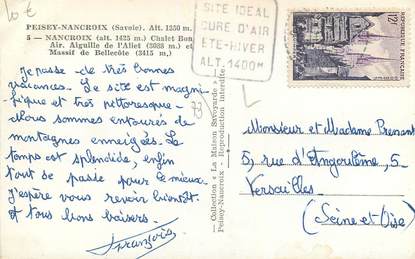 10€
PEISEY-NANCROIX (Savoie). Alt. 1350 m.
5 — NANCROIX (alt. 1425 m.) Chalet Bon
Air. Aiguille de l'Aliet (3088 m.) et
Massif de Bellecôte (3415 m.)
SITE IDEAL
CURE D'AIR
ETE-HIVER
ALT. 1400m
12F
REPUBLIQUE FRANÇAISE
73
Je passe de très bonnes
vacances. Le site est magni-
fique et très pittoresque-
Nous sommes entourés de
montagnes enneigées. Le
temps est splendide, enfin
tout se passe pour le mieux.
J'espère vous revoir bientôt
et tous bons baisers.
Françoise
— Collection « La Maison Savoyarde »
Peisey-Nancroix - Reproduction interdite
Monsieur et Madame Prenant
5, rue d'Angoulême, 5
Versailles
(Seine et Oise)